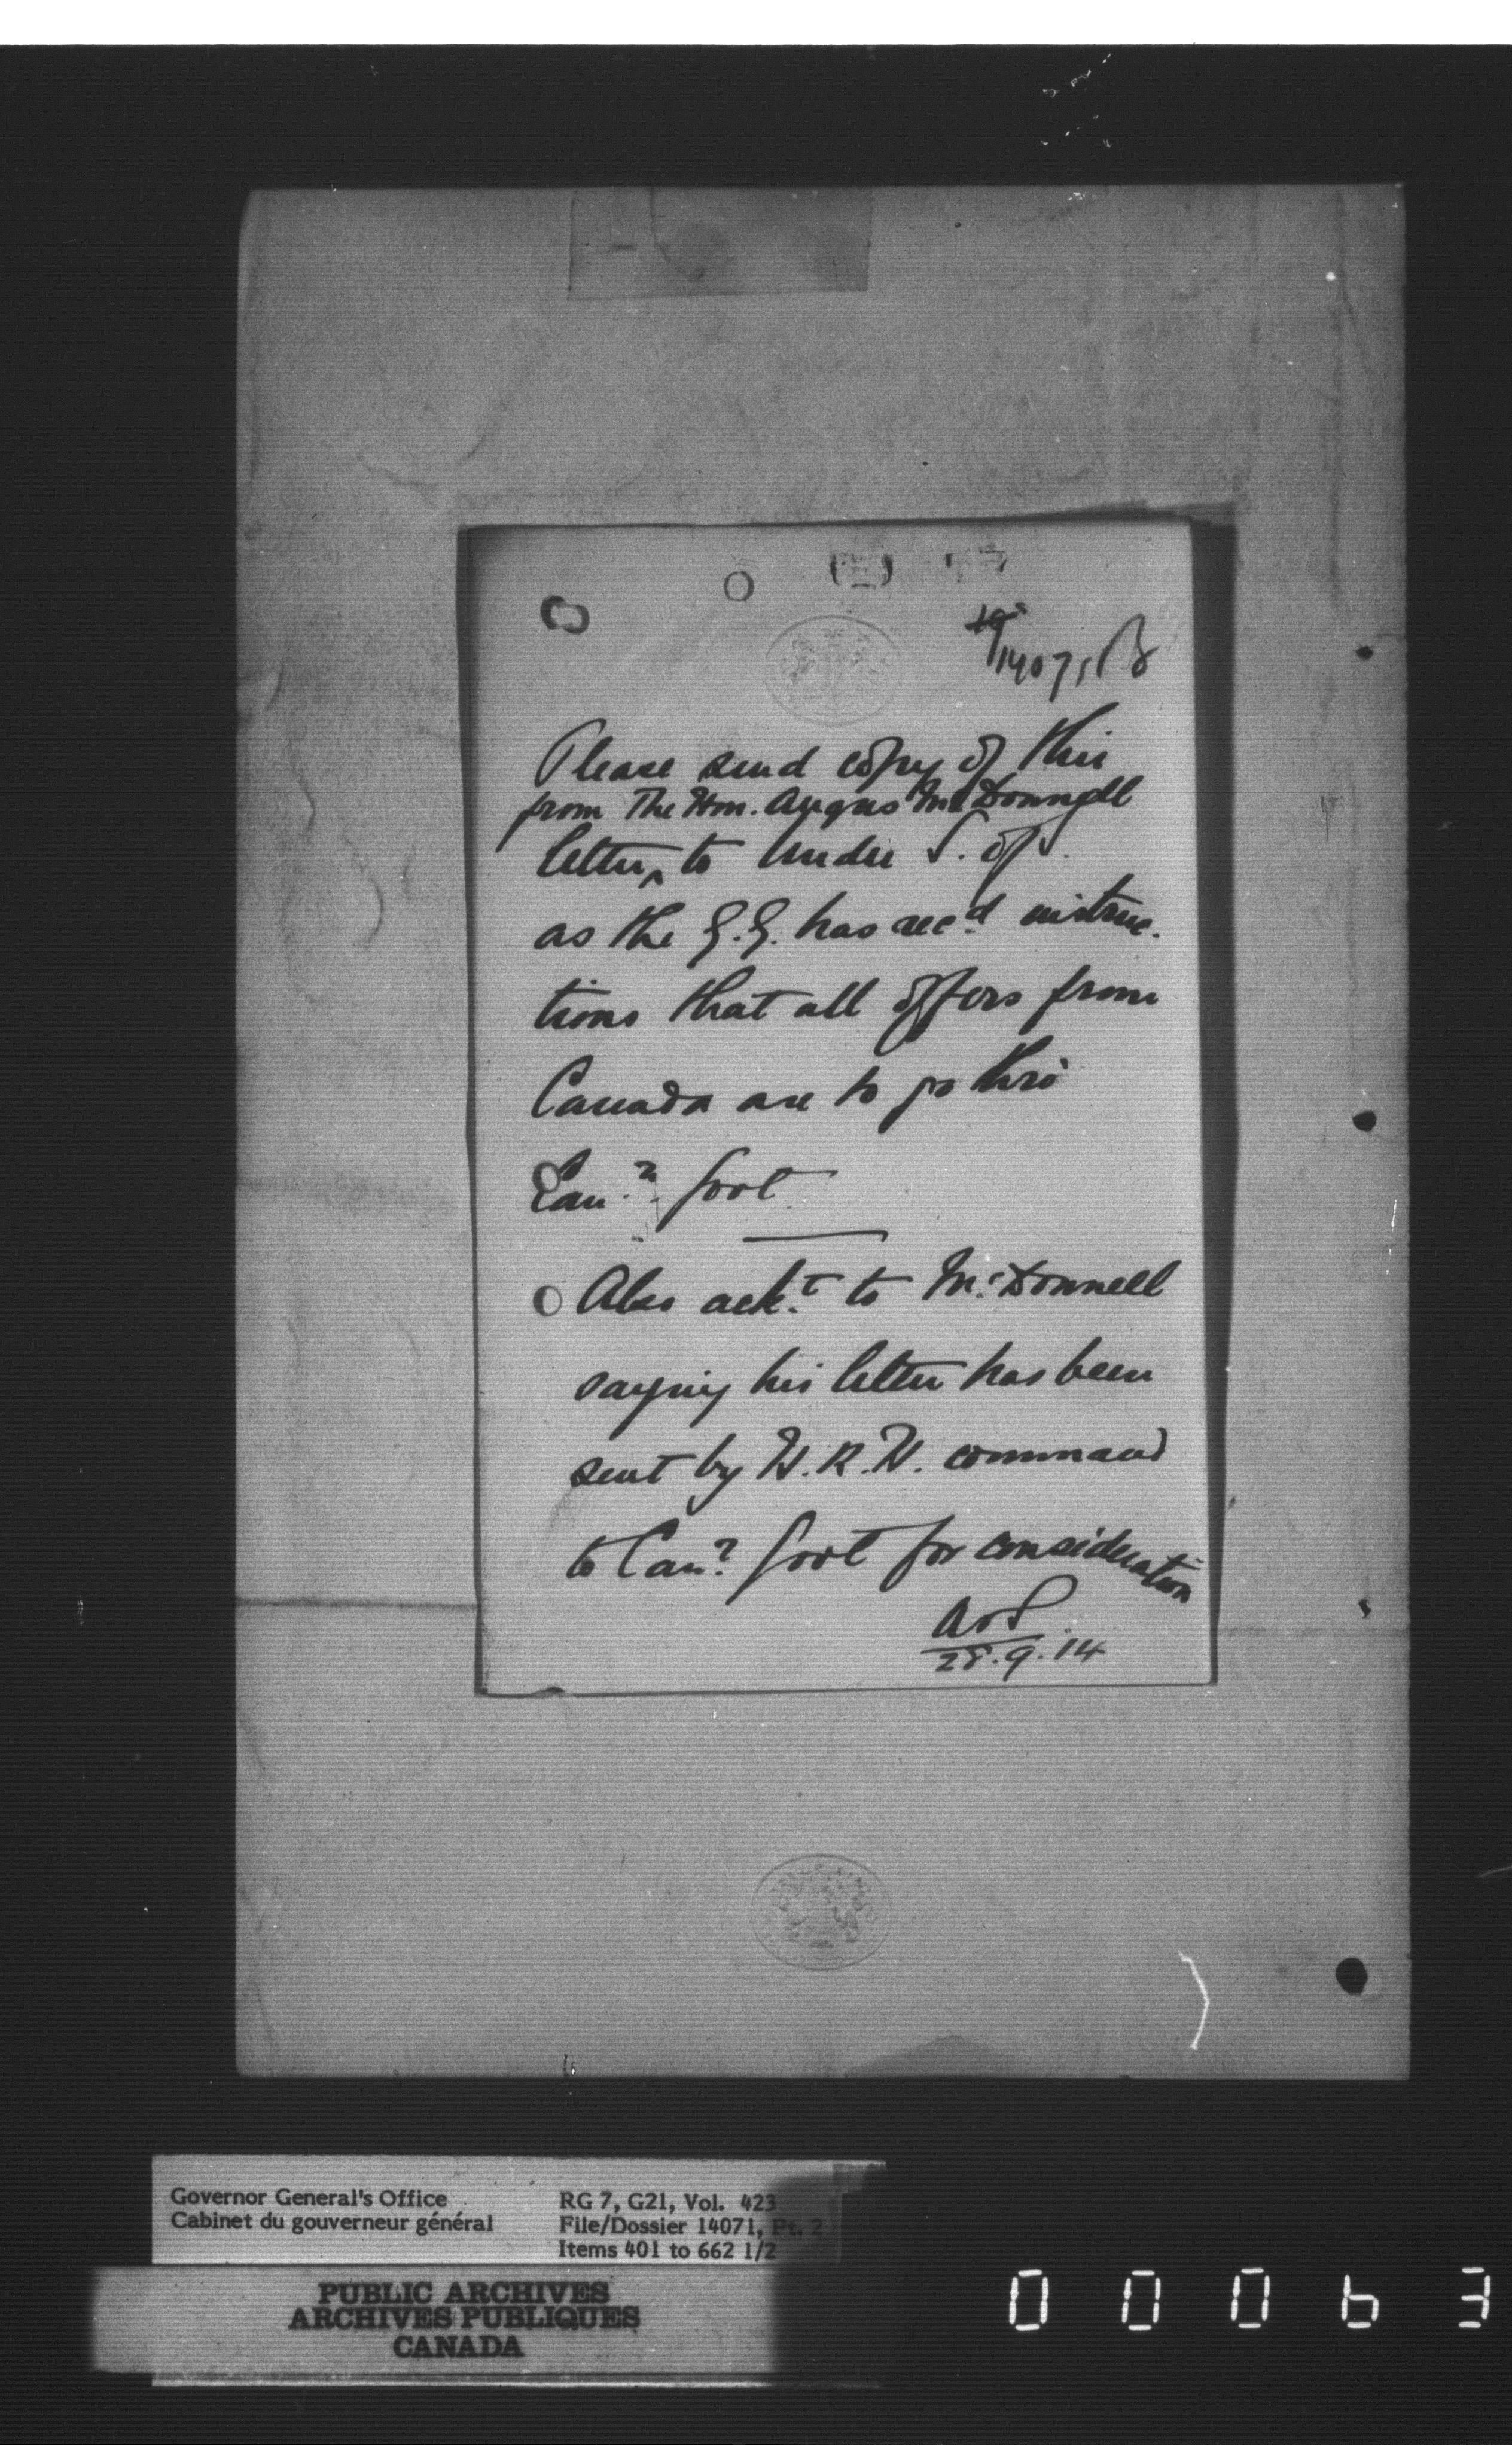 14071
Please send copy of this
from The Hon. Angus McDonnell
letter ^ to Under S. of S.
as the G.G. has rec.d instruc-
tions that all offers from
Canada are to go thro'
Can.n Govt
Also ack.t to McDonnell
saying his letter has been
sent by H.R.H. command
to Can.n Govt for consideration
28.9.14
Governor General's Office
Cabinet du gouverneur général
RG 7, G21, Vol. 423
File/Dossier 14071, Pt. 2
Items 401 to 662 1/2
PUBLIC ARCHIVES
ARCHIVES PUBLIQUES
CANADA
00063